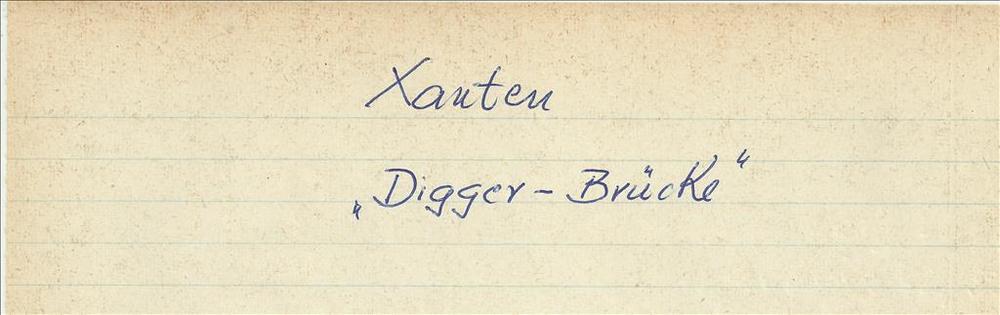 Xanten
„Digger-Brücke“